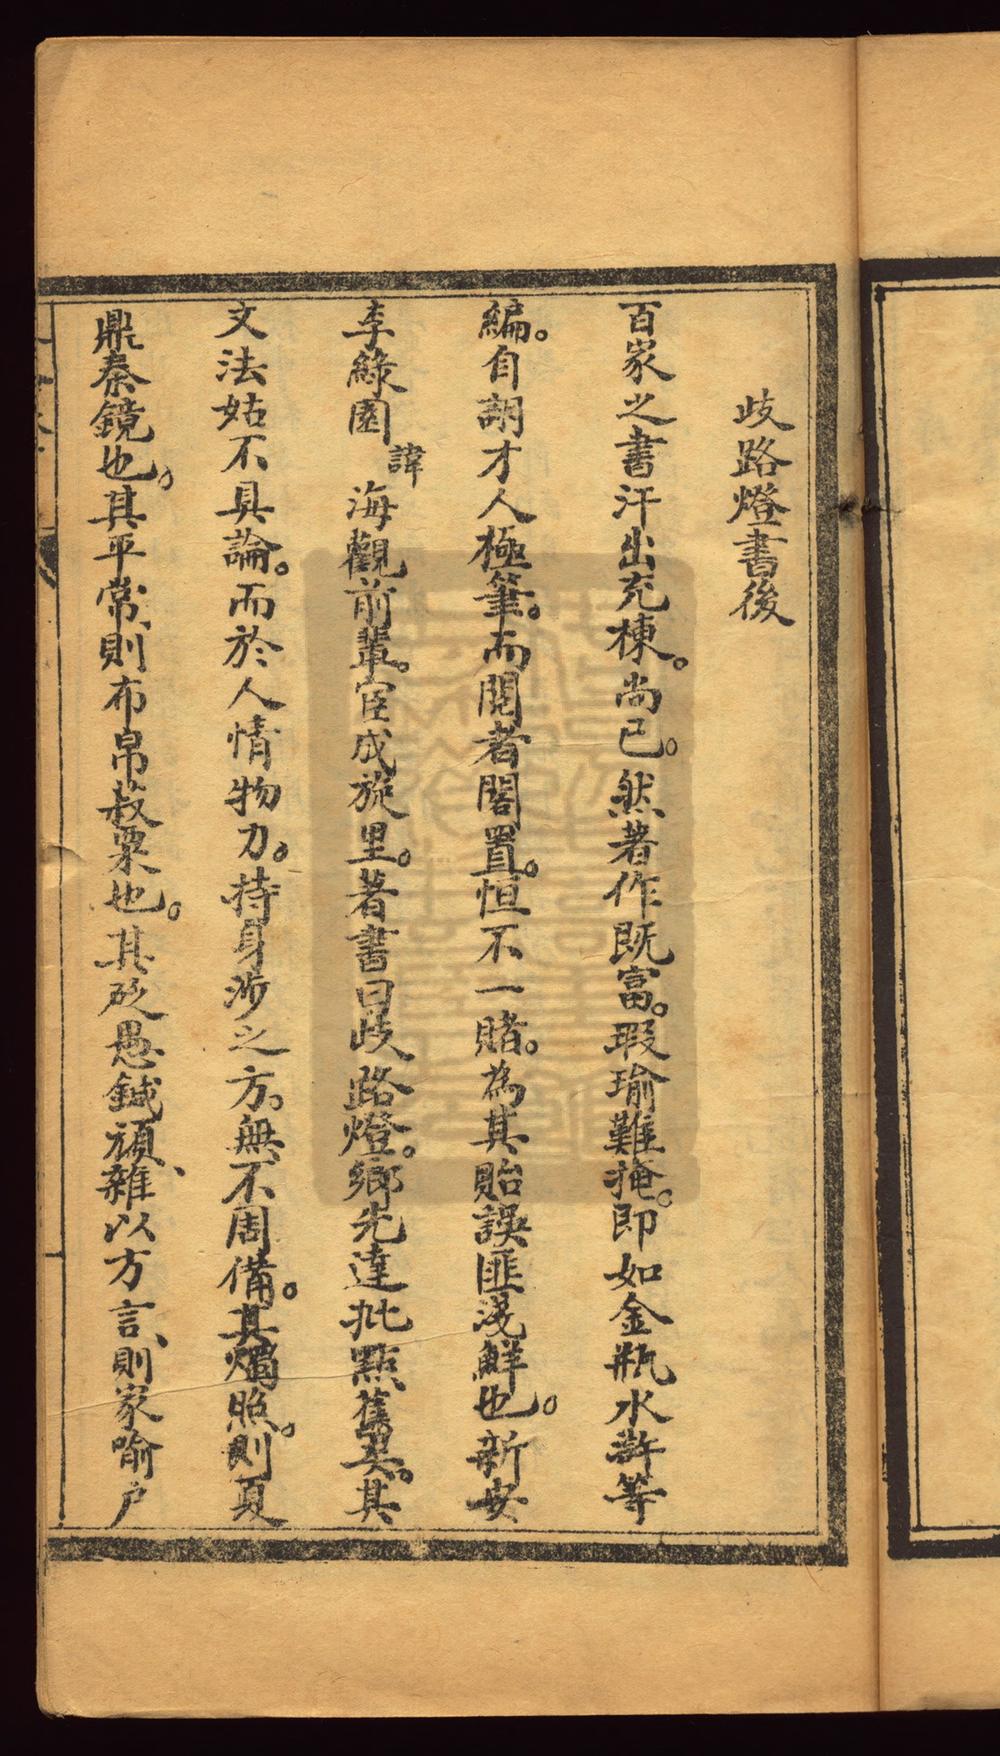 歧路燈書後
百家之書汗出充棟。尚已。然著作既富。瑕瑜難掩。即如金瓶水滸等
編。自詡才人極筆。而閱者閣置。恒不一睹。為其貽誤匪淺鮮也。新安
李綠園諱海觀前輩。宦成旋里。著書曰歧路燈。鄉先達批點舊矣。其
文法姑不具論。而於人情物力。持身涉之方。無不周備。其燭照。則夏
鼎秦鏡也。其平常、則布帛菽粟也。其砭愚鍼頑、雜以方言、則家喻户